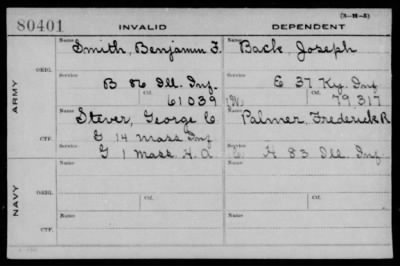 (3-M-3)
80401 INVALID DEPENDENT
Name Smith, Benjamin F. Name Back, Joseph
ARMY
ORIG. Service B 86 Ill. Inf. Service E 37 Ky. Inf.
Ctf. 61039 (W) Ctf. 79,317
Name Stever, George C Name Palmer, Frederick R
G 14 Mass Inf
CTF. Service G 1 Mass H.A. Service C H 83 Ill. Inf.
NAVY
Name Name
ORIG.
Ctf. Ctf.
Name Name
CTF.